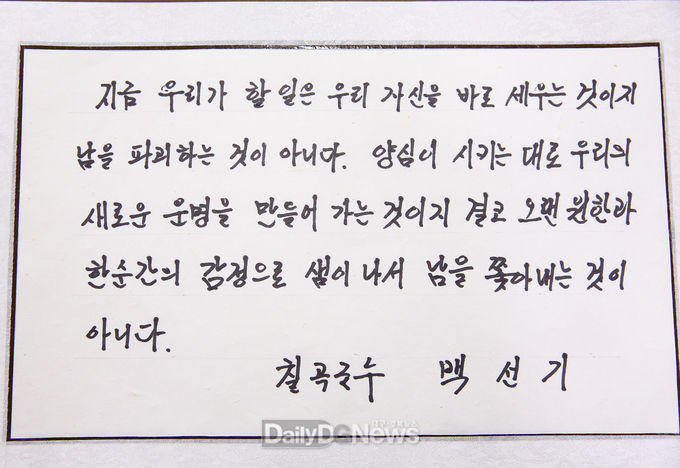 지금 우리가 할 일은 우리 자신을 바로 세우는 것이지
남을 파괴하는 것이 아니다. 양심이 시키는 대로 우리의
새로운 운명을 만들어 가는 것이지 결코 오랜 원한과
한순간의 감정으로 샘이 나서 남을 쫓아내는 것이
아니다.
칠곡군수 백선기
DailyDGNews